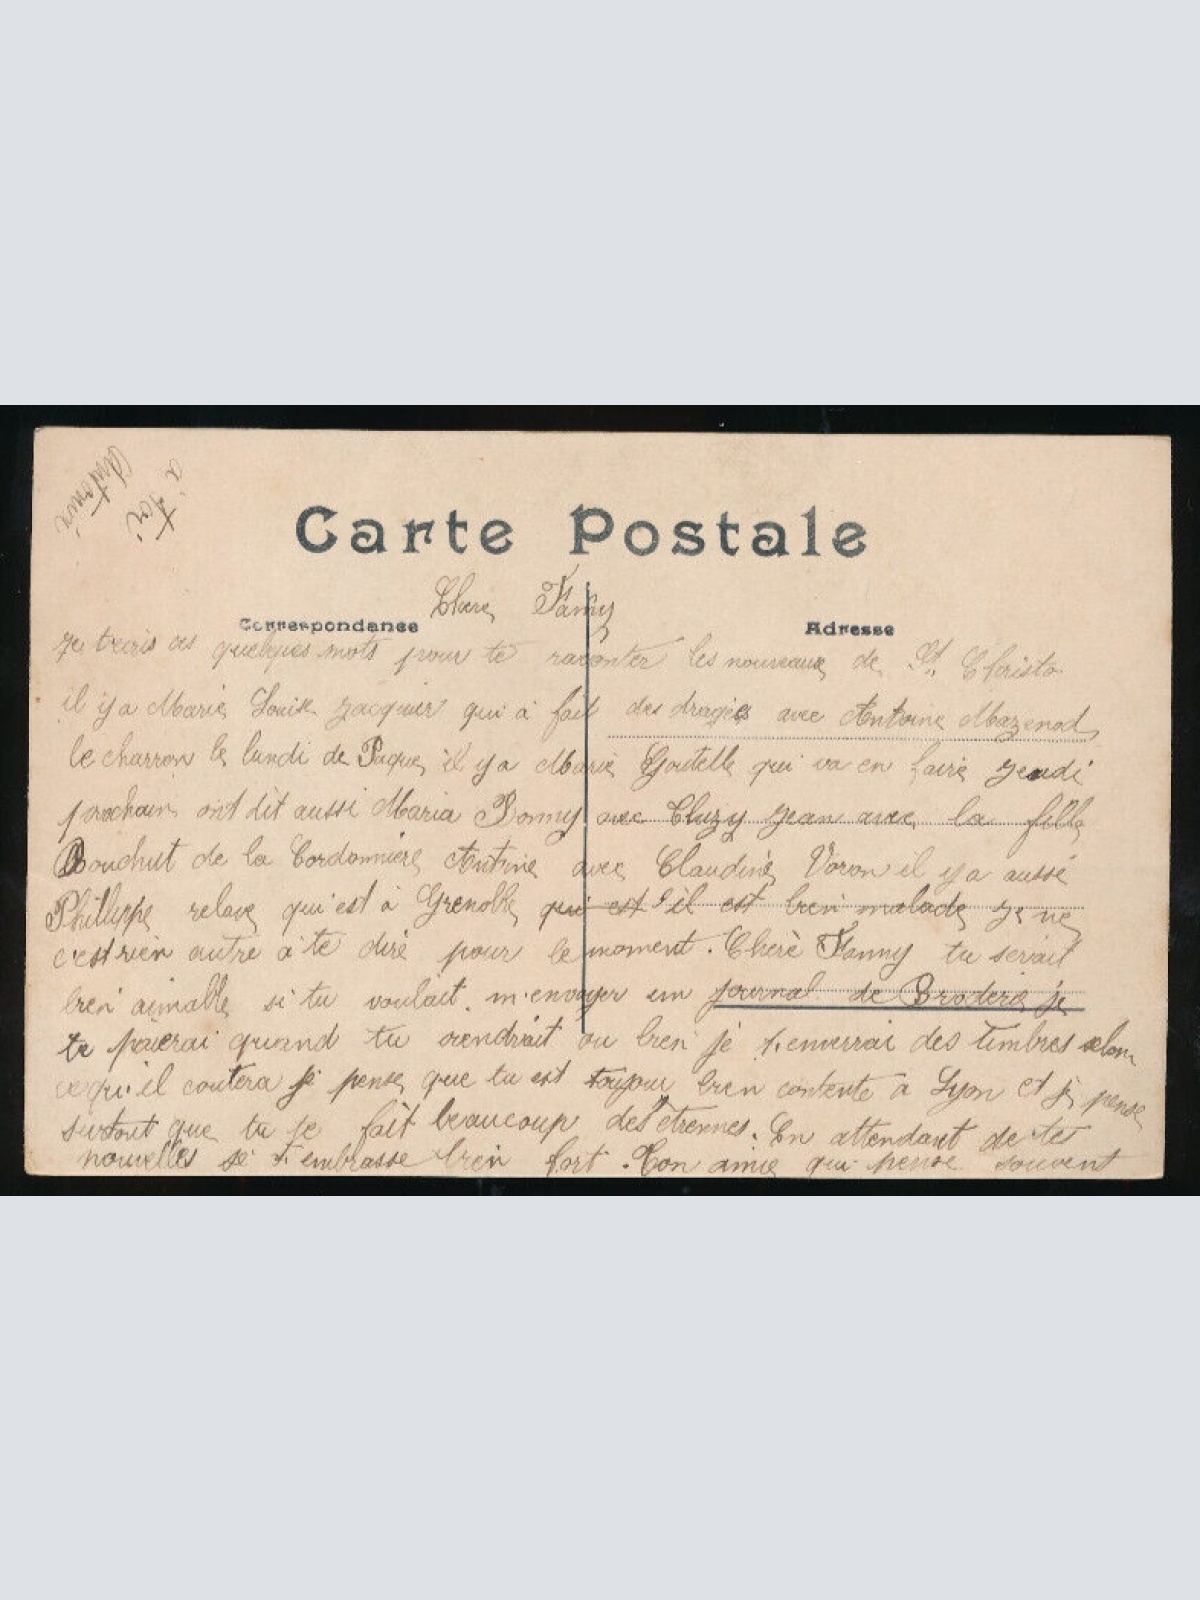 à toi
Antonia
Carte Postale
Chère Fanny
Correspondance
Adresse
Je trais ces quelques mots pour te raconter les nouveaux de St Christo
il y a Marie Louise Jacquier qui à fait des dragées avec Antoine Mazenod
le charron le lundi de Paque, il y a Marie Goutelle qui va en faire Jeudi
prochain ont dit aussi Maria Bonny avec Cluzy Jean avec la fille
Bouchut de la Cordonnière Antoine avec Claudine Voron il y a aussé
Philippe relave qui est à Grenoble qui est il est bien malade Je ne
c'est rien autre à te dire pour le moment. Chère Fanny tu serait
bien aimable si tu voulait m'envoyer un journal de Broderie je
te paierai quand tu viendrait ou bien je t'enverrai des timbres selon
ce qu'il coutera je pense que tu est toujour bien contente a Lyon et je pense
surtout que tu te fait beaucoup des étrennes. En attendant de tes
nouvelles je t'embrasse bien fort. Ton amie qui pense souvent